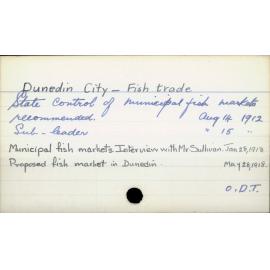 Dunedin City - Fish trade
State Control of Municipal fish markets
recommended. Aug 14 1912
Sub-leader " 15 "
Municipal fish markets Interview with Mr Sullivan. Jan 25, 1918
Proposed fish market in Dunedin. May 28, 1918.
O.D.T.